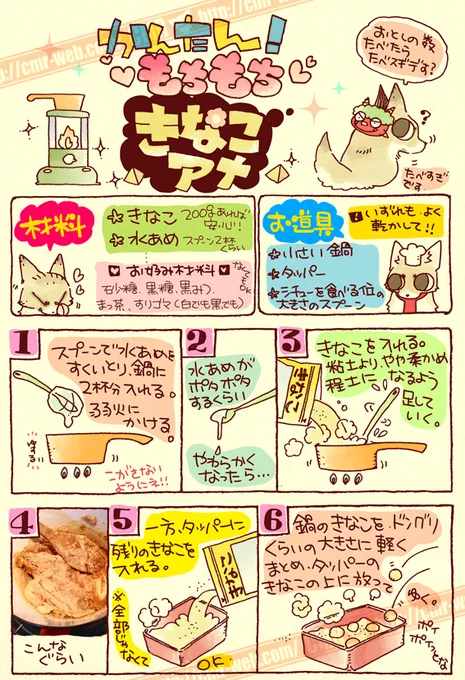 http://cmr-web.com/
http://cmr-web.com/
かんたん!
もちもち
きなこ
アメ
おとしの数
たべたら
たべスギデす?
?
たべすぎ
です
材料
きなこ 200gあれば
安心!!
水あめ スプーン2杯
くらい
お好み材料
なくてもOK
石少糖、黒糖、黒みつ
まっ茶、すりゴマ(白でも黒でも)
お道具
いずれも よく
乾かして!!
小さい鍋
タッパー
シチューを食べる位の
大きさのスプーン
1
スプーンで水あめを
すくいとり、鍋に
2杯分入れる。
弱火に
かける。
こがさない
ようにネ!!
2
水あめが
ポタポタ
するくらい
やわらかく
なったら…
3
きなこを入れる。
粘土より、やや柔かめ
程土に なるよう
足して
いく。
きなこ
4
こんな
ぐらい
5
一方、タッパーに
残りのきなこを
入れる。
きなこ
※全部じゃなくて
OK
6
鍋のきなこを、ドングリ
くらいの大きさに軽く
まとめ、タッパーの
きなこの上に放って
ゆく。
ポイ
ポイっとな
http://cmr-web.com/